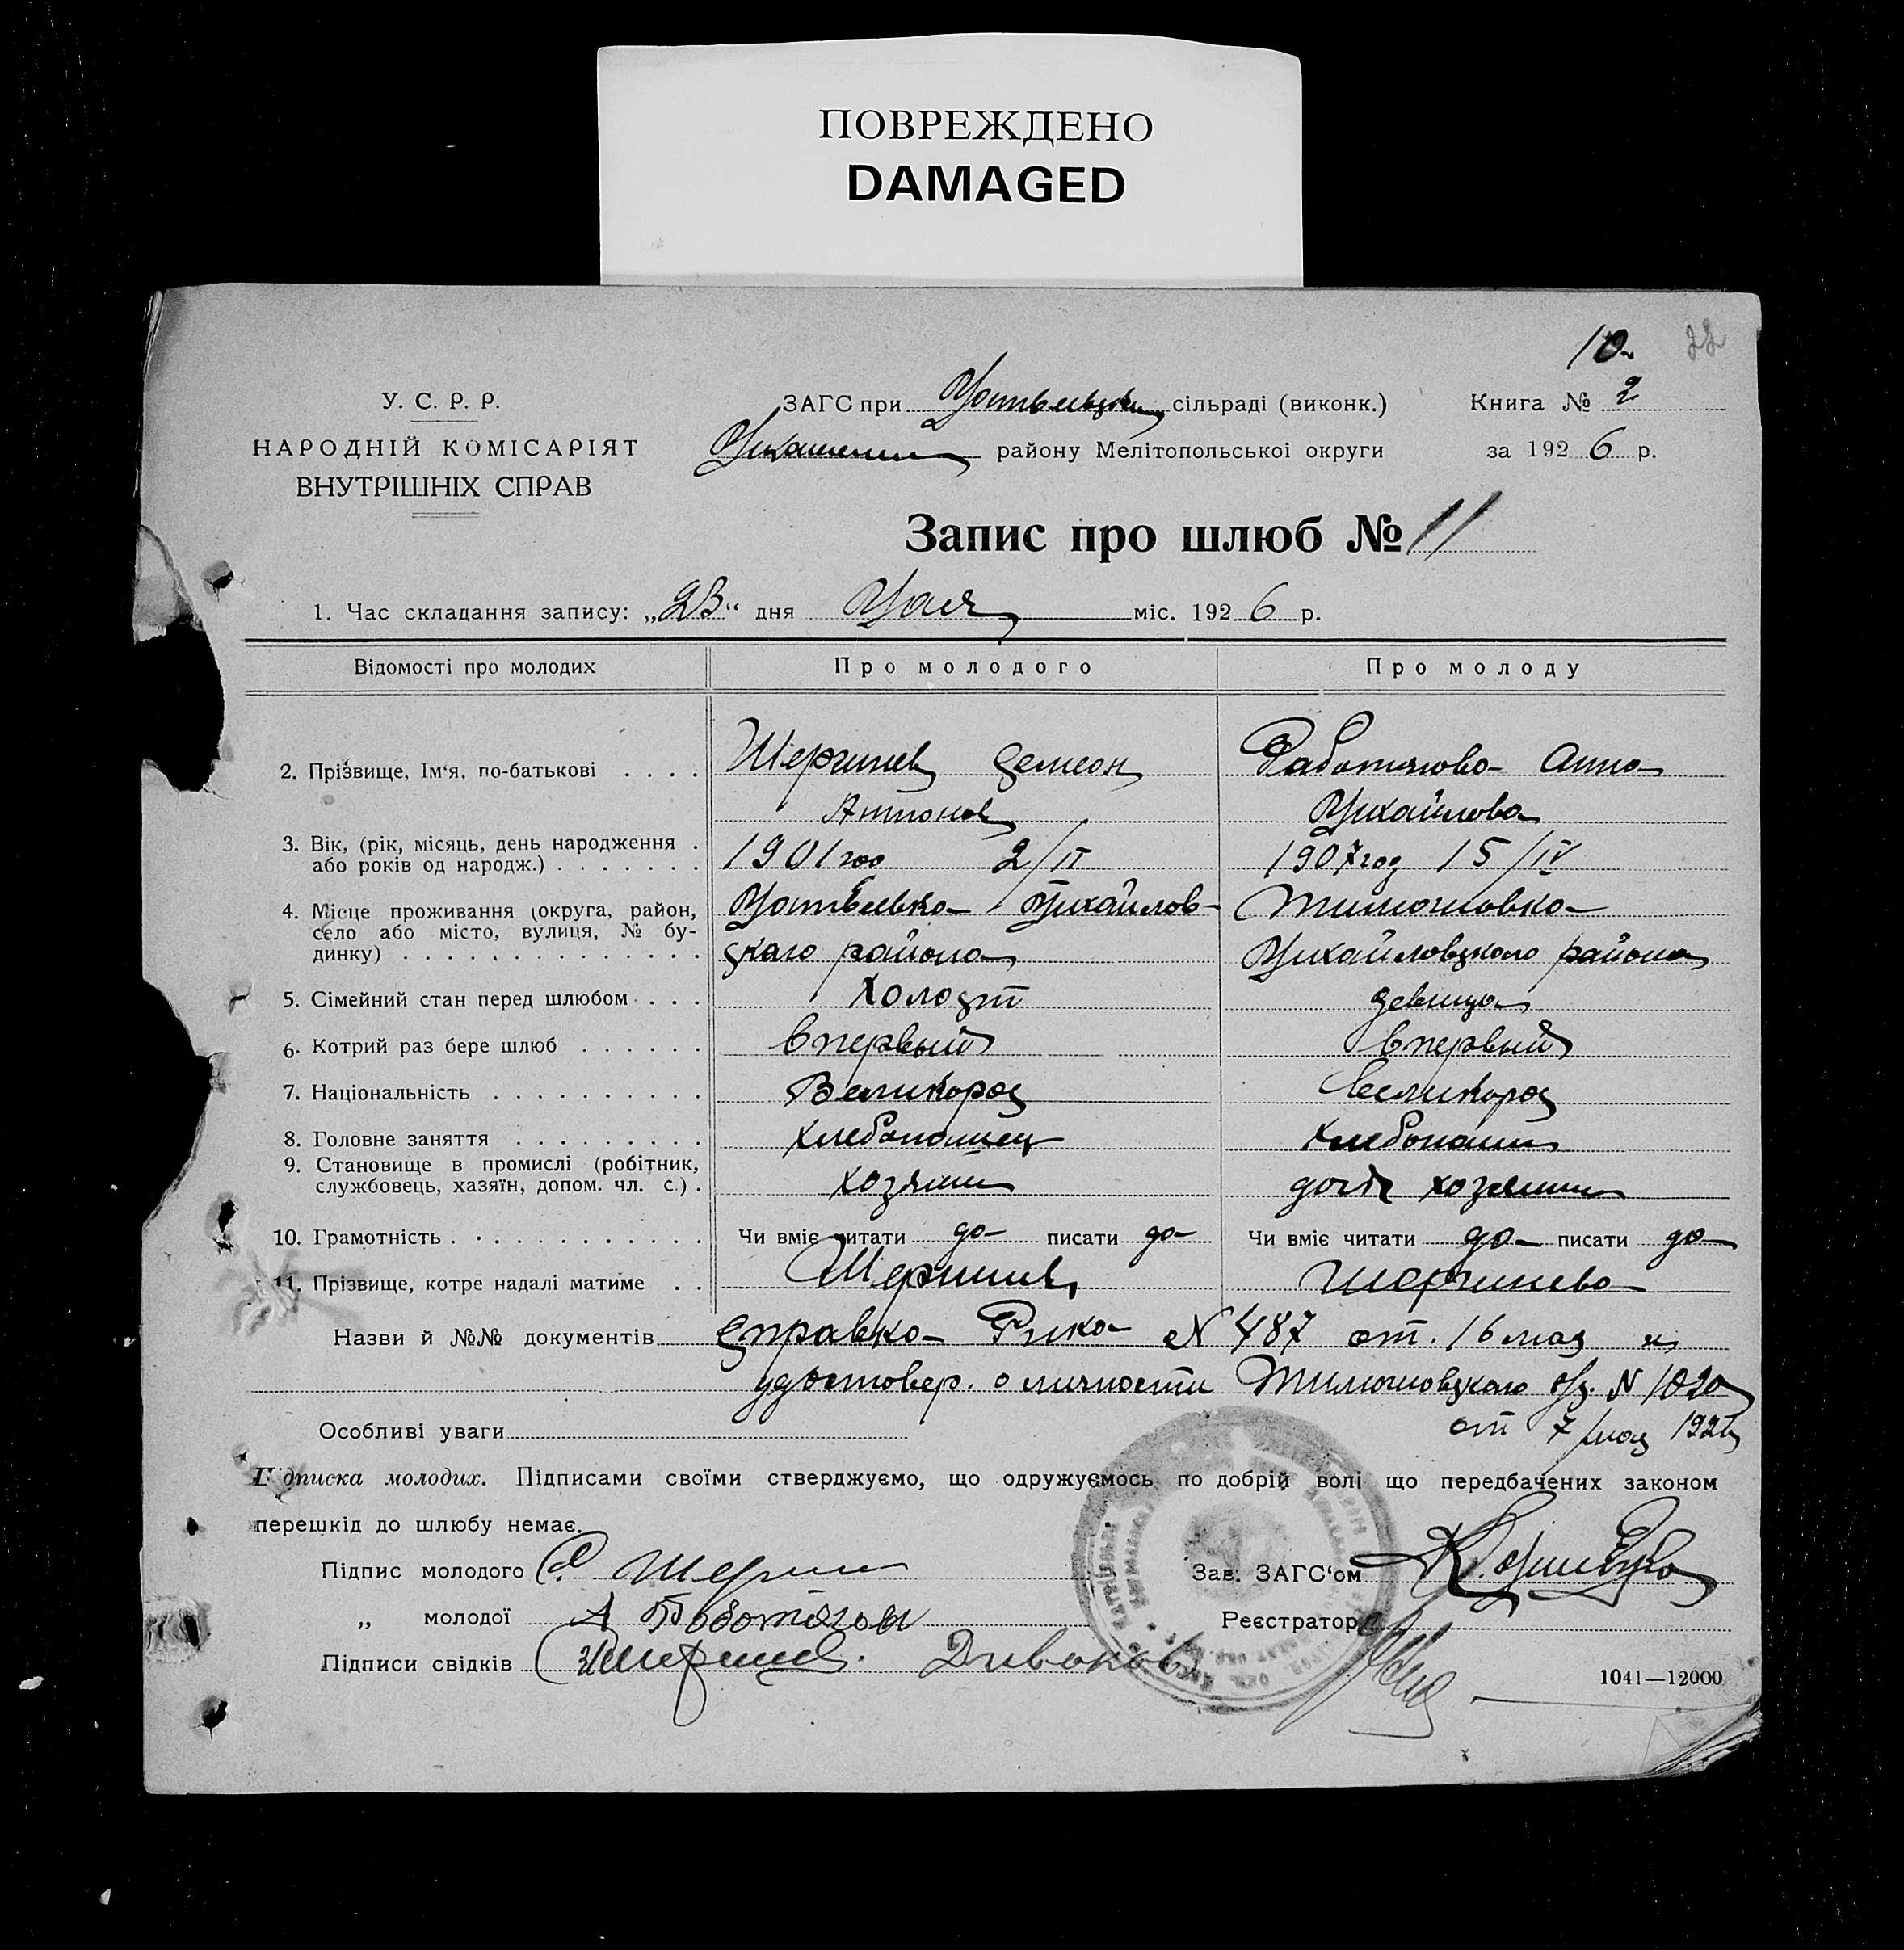 ПОВРЕЖДЕНО
DAMAGED
10
22
У. С. Р. Р.
НАРОДНІЙ КОМІСАРІЯТ
ВНУТРІШНІХ СПРАВ
ЗАГС при сільраді (виконк.)
Книга № 2
району Мелітопольської округи
за 1926 р.
Запис про шлюб № 11
1. Час складання запису: „23“ дня Мая міс. 1926 р.
Відомості про молодих
Про молодого
Про молоду
2. Прізвище, Ім'я, по-батькові
Шергинев Семеон
Антонов
Работягова Анна
Михайлова
3. Вік, (рік, місяць, день народження
або років од народж.)
1901 год 2/II
1907 год 15/IV
4. Місце проживання (округа, район,
село або місто, вулиця, № бу-
динку)
Матвеевка Михайлов-
скаго района
Тимошовка
Михайловского района
5. Сімейний стан перед шлюбом
Холост
девица
6. Котрий раз бере шлюб
впервый
впервый
7. Національність
Великорос
Великорос
8. Головне заняття
хлебопашец
хлебопаш
9. Становище в промислі (робітник,
службовець, хазяїн, допом. чл. с.)
хозяин
дочь хозяина
10. Грамотність
Чи вміє читати да писати да
Чи вміє читати да писати да
11. Прізвище, котре надалі матиме
Шергинев
Шергинева
Назви й №№ документів справка Рика № 487 от. 16 мая и
удостовер. о личности Тимошовского с/с. № 1020
от 7 мая 192
Особливі уваги
Підписка молодих. Підписами своїми стверджуємо, що одружуємось по добрій волі що передбачених законом
перешкід до шлюбу немає.
Підпис молодого С. Шергин
Зав. ЗАГС'ом
„ молодої А Работягова
Реєстратор
Підписи свідків Диваков
1041—12000